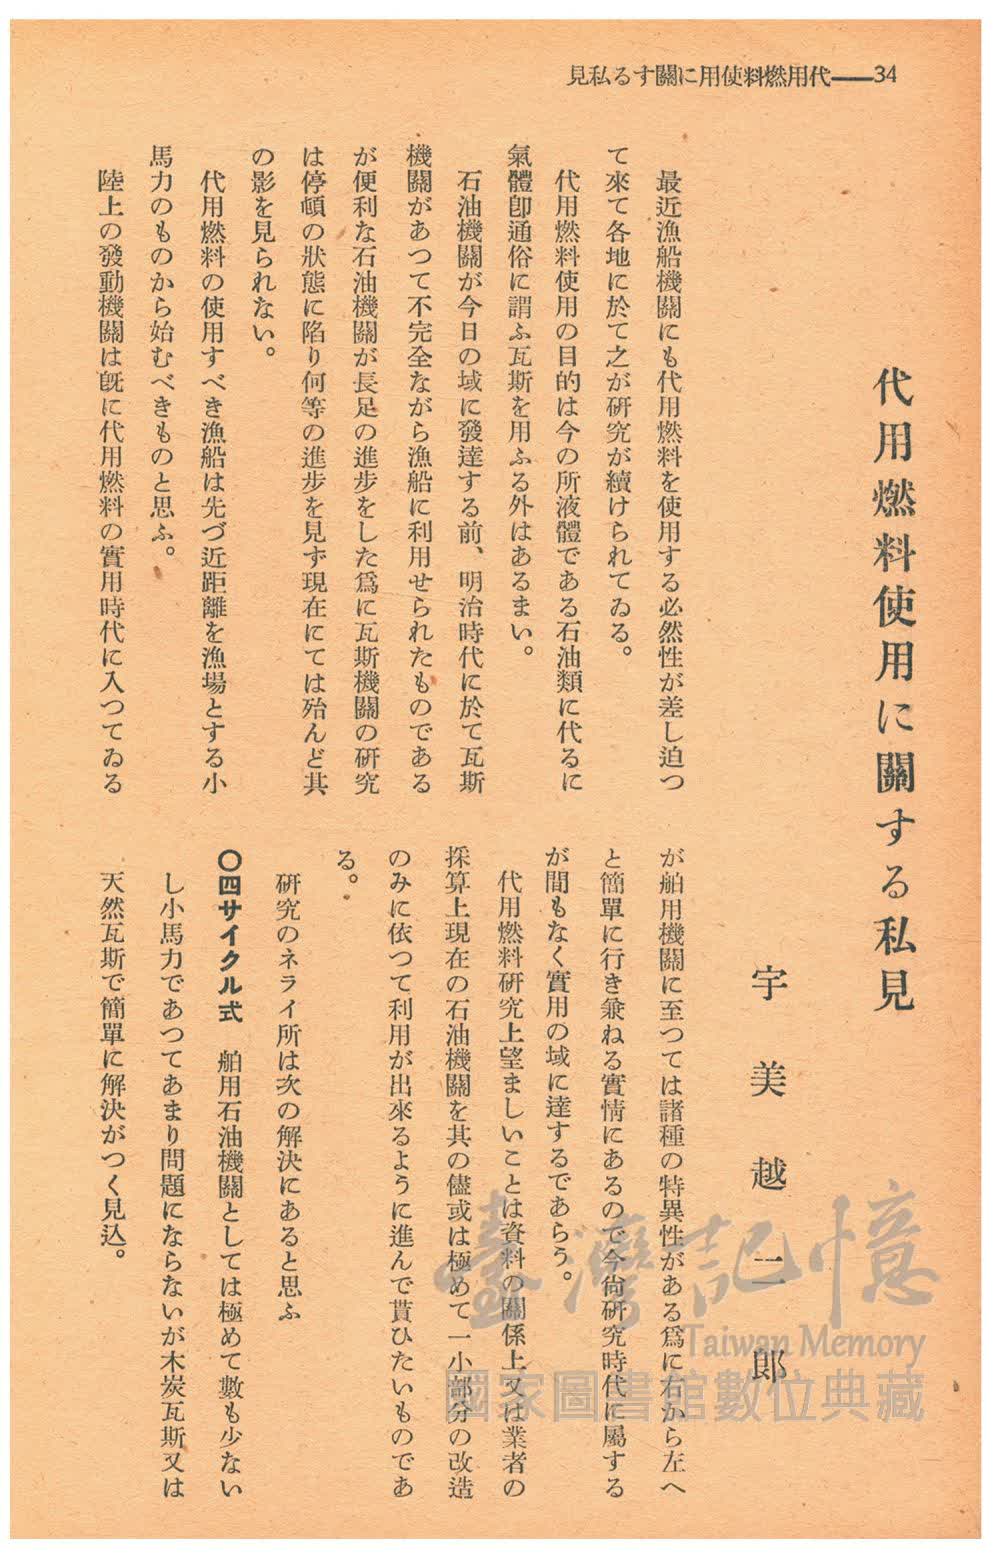 34——代用燃料使用に關する私見
代用燃料使用に關する私見
宇美越二郎
最近漁船機關にも代用燃料を使用する必然性が差し迫つ
て來て各地に於て之が硏究が續けられてゐる。
代用燃料使用の目的は今の所液體である石油類に代るに
氣體卽通俗に謂ふ瓦斯を用ふる外はあるまい。
石油機關が今日の域に發達する前、明治時代に於て瓦斯
機關があつて不完全ながら漁船に利用せられたものである
が便利な石油機關が長足の進步をした爲に瓦斯機關の硏究
は停頓の狀態に陷り何等の進步を見ず現在にては殆んど其
の影を見られない。
代用燃料の使用すべき漁船は先づ近距離を漁場とする小
馬力のものから始むべきものと思ふ。
陸上の發動機關は旣に代用燃料の實用時代に入つてゐる
が舶用機關に至つては諸種の特異性がある爲に右から左へ
と簡單に行き兼ねる實情にあるので今尙硏究時代に屬する
が間もなく實用の域に達するであらう。
代用燃料硏究上望ましいことは資料の關係上又は業者の
採算上現在の石油機關を其の儘或は極めて一小部分の改造
のみに依つて利用が出來るように進んで貰ひたいものであ
る。
硏究のネライ所は次の解決にあると思ふ
〇四サイクル式　舶用石油機關としては極めて數も少ない
し小馬力であつてあまり問題にならないが木炭瓦斯又は
天然瓦斯で簡單に解決がつく見込。
臺灣記憶
Taiwan Memory
國家圖書館數位典藏